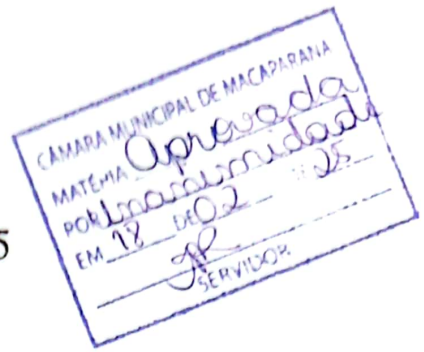 CÂMARA MUNICIPAL DE MACAPARANA
MATÉRIA Aprovada
POR Unanimidade
EM 18 DE 02 25
SERVIDOR
5